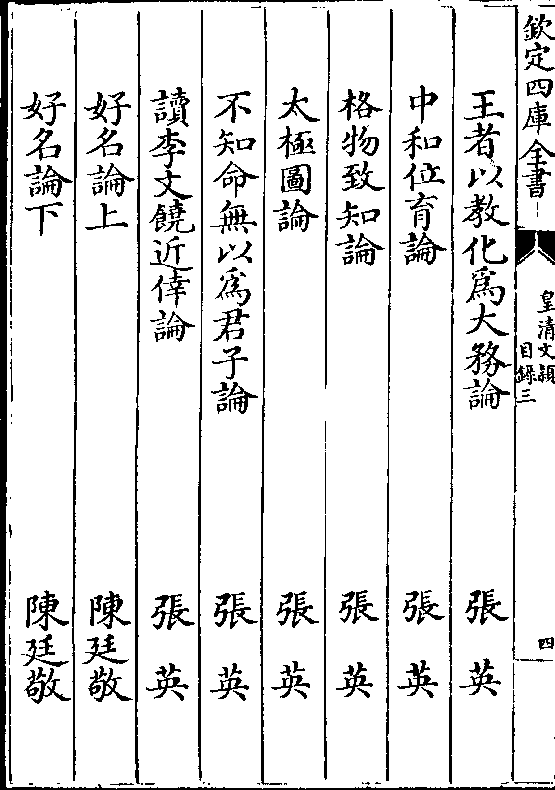 欽定四庫全書
皇清文穎
目錄三
四
王者以教化爲大務論 張英
中和位育論 張英
格物致知論 張英
太極圖論 張英
不知命無以爲君子論 張英
讀李文饒近倖論 張英
好名論上 陳廷敬
好名論下 陳廷敬